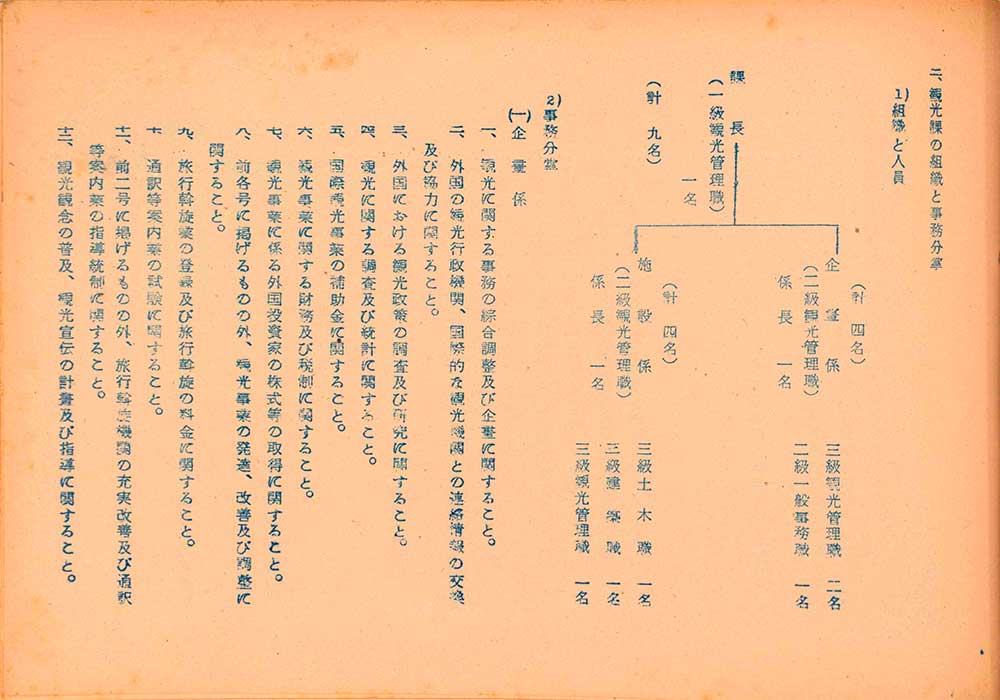 二、観光課の組織と事務分掌
1)組織と人員
(計 四名)
企画係
(二級観光管理職)
係長 一名
三級観光管理職 二名
二級一般事務職 一名
課長
(一級観光管理職)
一名
(計 九名)
(計 四名)
施設係
(二級観光管理職)
係長 一名
三級土木職 一名
三級建築職 一名
三級観光管理職 一名
2)事務分掌
(一)企画係
一、観光に関する事務の綜合調整及び企画に関すること。
二、外国の観光行政機関、国際的な観光機関との連絡情報の交換
及び協力に関すること。
三、外国における観光政策の調査及び研究に関すること。
四、観光に関する調査及び統計に関すること。
五、国際観光事業の補助金に関すること。
六、観光事業に関する財務及び税制に関すること。
七、観光事業に係る外国投資家の株式等の取得に関すること。
八、前各号に掲げるものの外、観光事業の発達、改善及び調整に
関すること。
九、旅行斡旋業の登録及び旅行斡旋の料金に関すること。
十、通訳等案内業の試験に関すること。
十一、前二号に掲げるものの外、旅行斡旋機関の充実改善及び通訳
等案内業の指導統制に関すること。
十二、観光観念の普及、観光宣伝の計画及び指導に関すること。